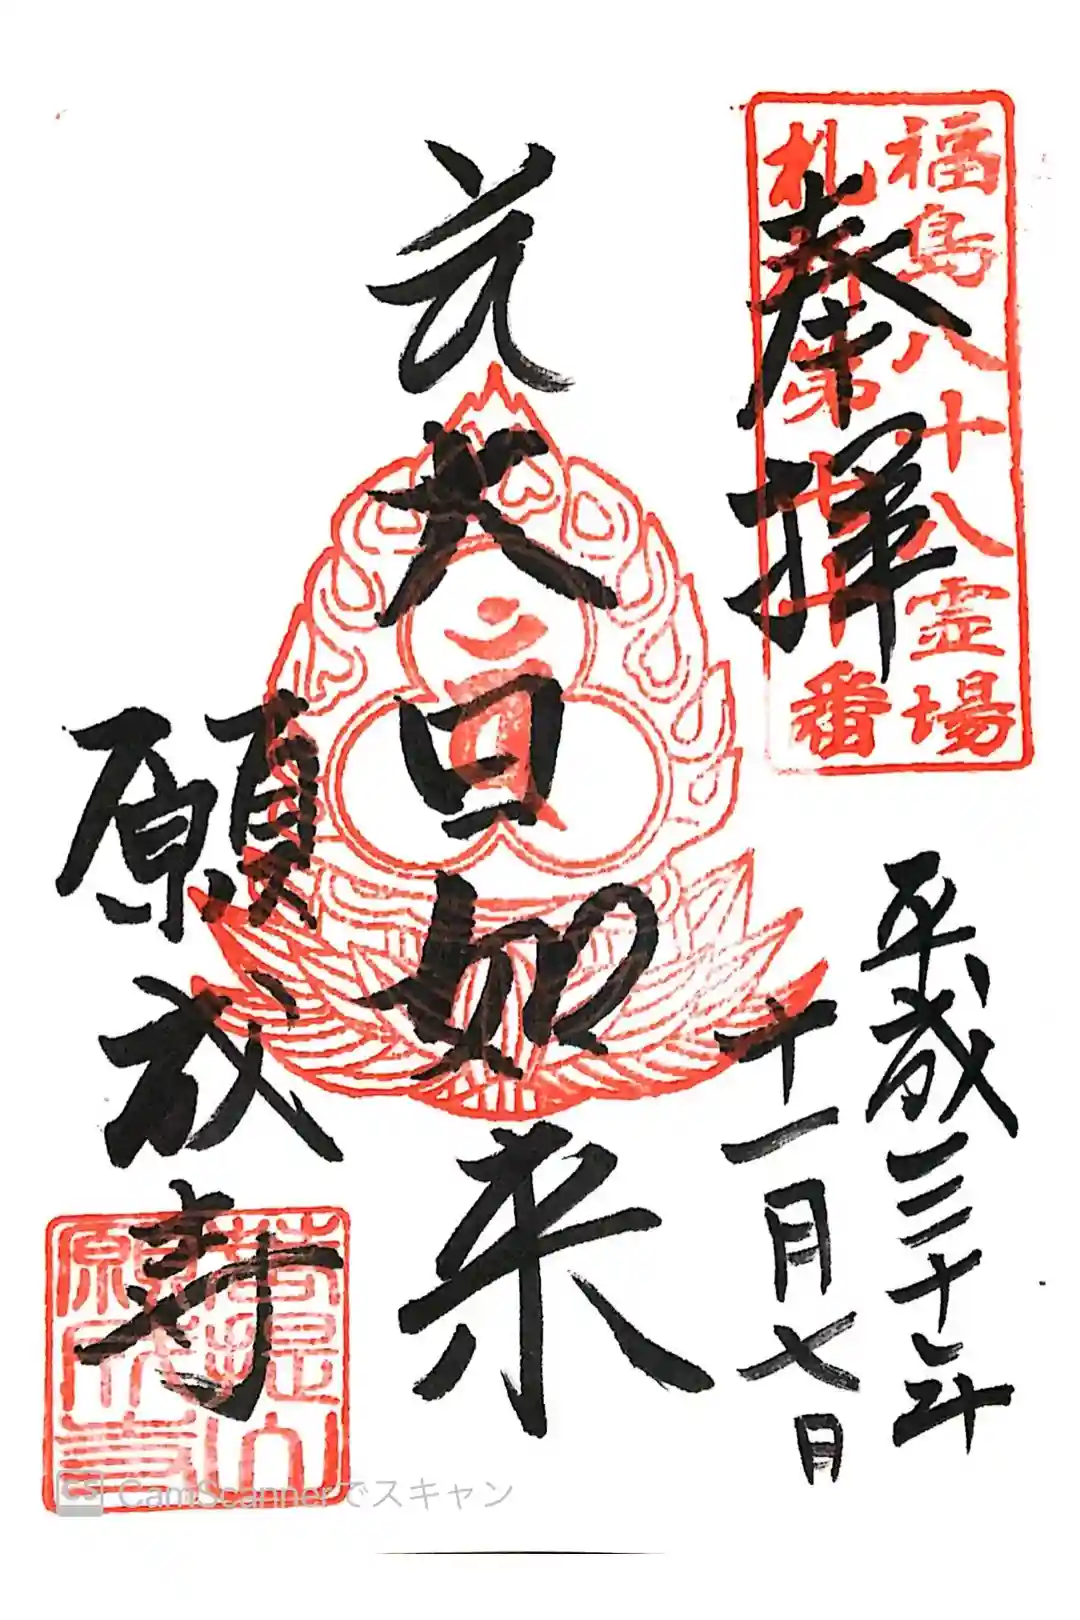 福島八十八霊場
札所第七十番
奉拝
平成三十年
十一月七日
大日如来
願成寺
菩提山
願成寺
CS CamScannerでスキャン